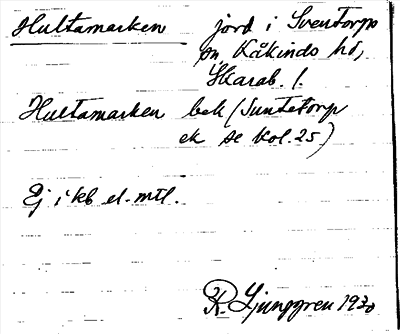 Hultamarken jord i Sventorps
sn, Kåkinds hd,
Skarab. l.
Hultamarken bek (Suntetorp
ek se kol. 25)
Ej i kb el. mtl.
R. Ljunggren 1930